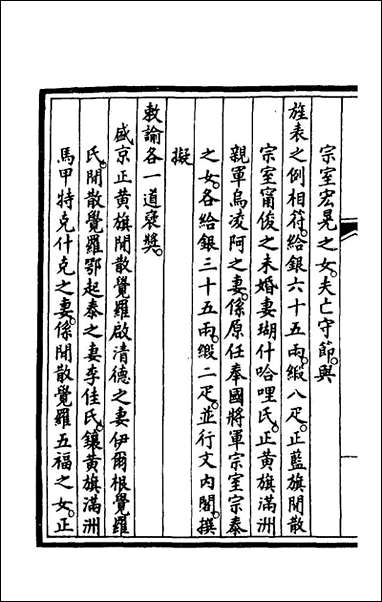 宗室宏晃之女。夫亡守節。與
旌表之例相符。給銀六十五兩。緞八疋。正藍旗閒散
宗室甯俊之未婚妻瑚什哈哩氏。正黃旗滿洲
親軍烏凌阿之妻。係原任奉國將軍宗室宗奉
之女。各給銀三十五兩。緞二疋。並行文內閣。撰
擬
敕諭各一道褒獎。
盛京正黃旗閒散覺羅啟清德之妻伊爾根覺羅
氏。閒散覺羅鄂起泰之妻李佳氏。鑲黃旗滿洲
馬甲特克什克之妻。係閒散覺羅五福之女。正